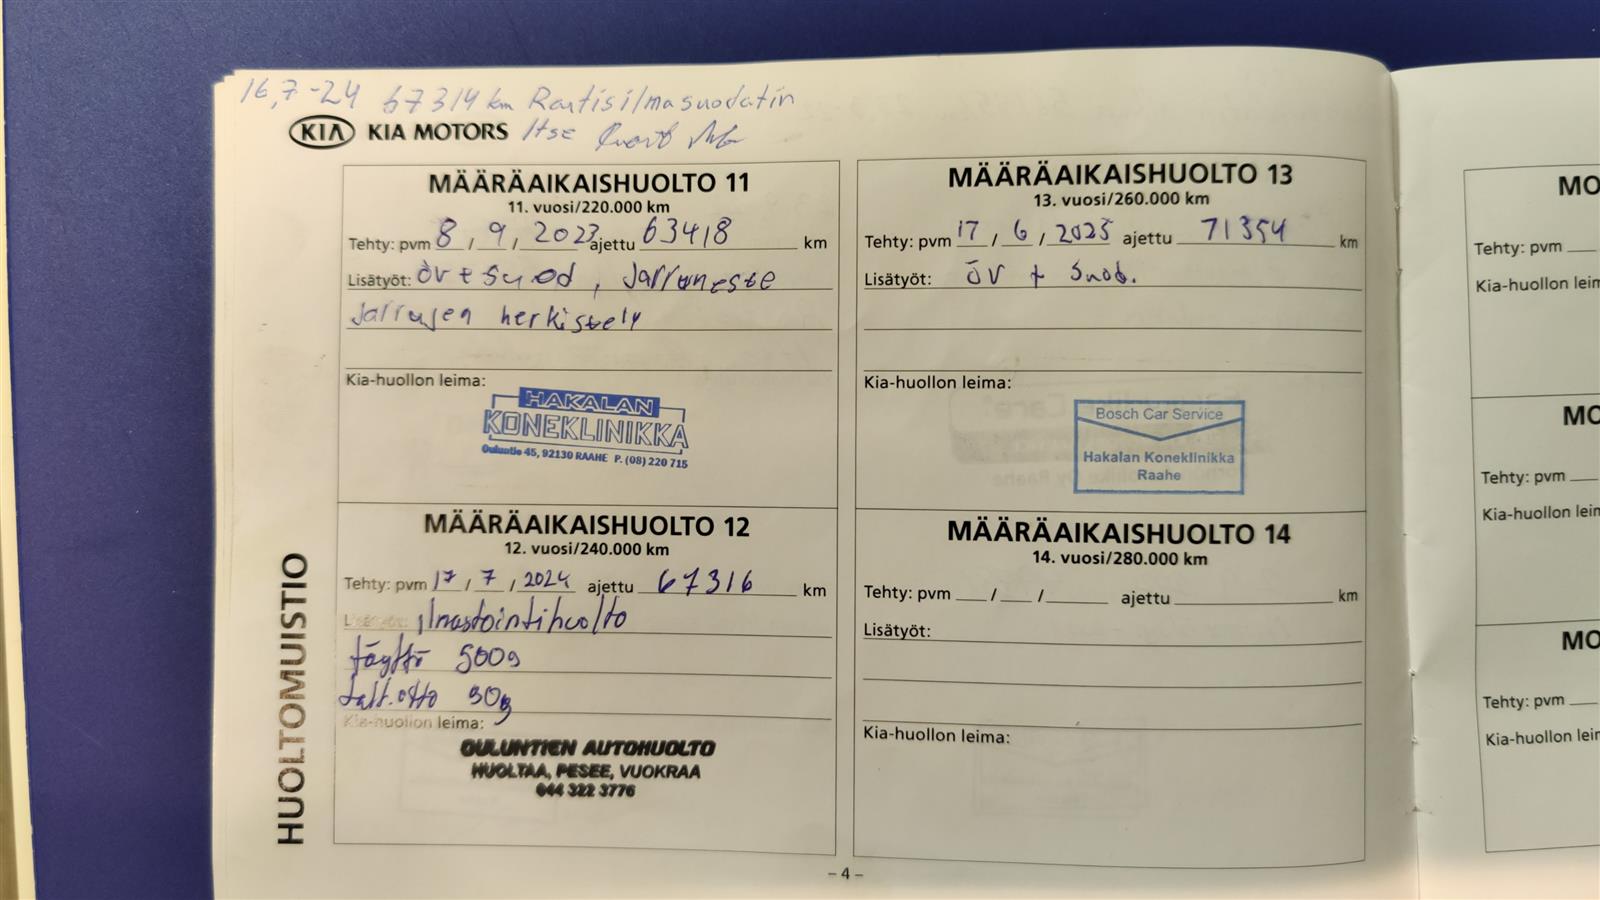 16,7-24 67314 km Raitisilmasuodatin
KIA KIA MOTORS Itse
MÄÄRÄAIKAISHUOLTO 11
11. vuosi/220.000 km
Tehty: pvm 8 / 9 / 2023 ajettu 63418 km
Lisätyöt: öv + suod, Jarruneste
Jarrujen herkistely
Kia-huollon leima:
HAKALAN
KONEKLINIKKA
Ouluntie 45, 92130 RAAHE P. (08) 220 715
MÄÄRÄAIKAISHUOLTO 12
12. vuosi/240.000 km
Tehty: pvm 17 / 7 / 2024 ajettu 67316 km
Lisätyöt: ilmastointihuolto
täyttö 500g
talt.otto 90g
Kia-huollon leima:
OULUNTIEN AUTOHUOLTO
HUOLTAA, PESEE, VUOKRAA
044 322 3776
MÄÄRÄAIKAISHUOLTO 13
13. vuosi/260.000 km
Tehty: pvm 17 / 6 / 2025 ajettu 71354 km
Lisätyöt: öv + suod.
Kia-huollon leima:
Bosch Car Service
Hakalan Koneklinikka
Raahe
MÄÄRÄAIKAISHUOLTO 14
14. vuosi/280.000 km
Tehty: pvm / / ajettu km
Lisätyöt:
Kia-huollon leima:
HUOLTOMUISTIO
- 4 -
MO
Tehty: pvm
Kia-huollon leim
MO
Tehty: pvm
Kia-huollon leim
MO
Tehty: pvm
Kia-huollon leim